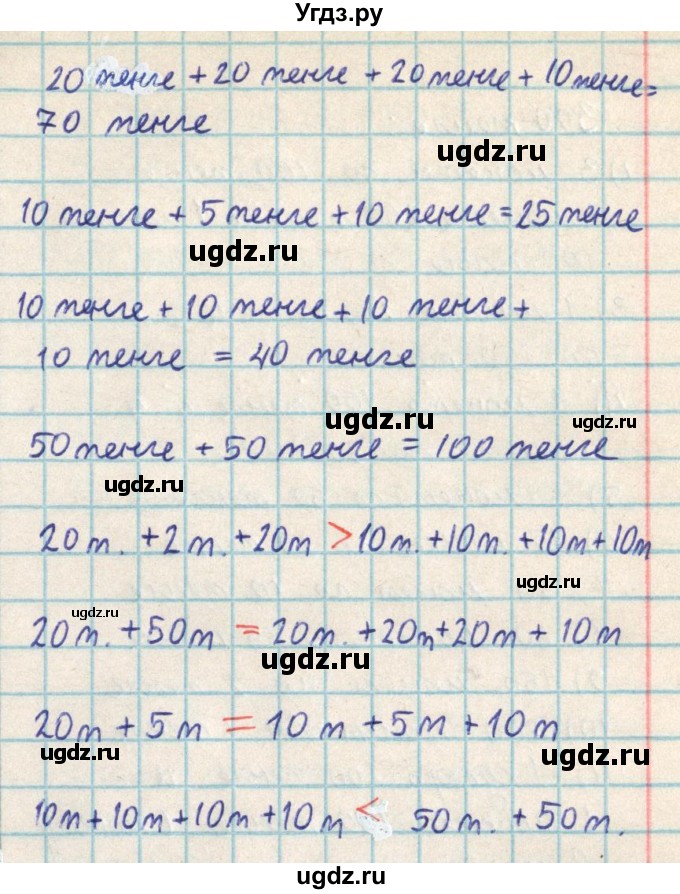 Угдз.ру
20 тенге + 20 тенге + 20 тенге + 10 тенге =
70 тенге
ugdz.ru
10 тенге + 5 тенге + 10 тенге = 25 тенге
ugdz.ru
10 тенге + 10 тенге + 10 тенге +
10 тенге = 40 тенге
ugdz.ru
ugdz.ru
50 тенге + 50 тенге = 100 тенге
ugdz.ru
20т. + 2т. + 20т > 10т. + 10т. + 10т + 10т
ugdz.ru
ugdz.ru
20т. + 50т = 20т. + 20т + 20т + 10т
ugdz.ru
20т + 5т = 10т + 5т + 10т
ugdz.ru
ugdz.ru
10т + 10т + 10т + 10т < 50т. + 50т.
ugdz.ru
ugdz.ru